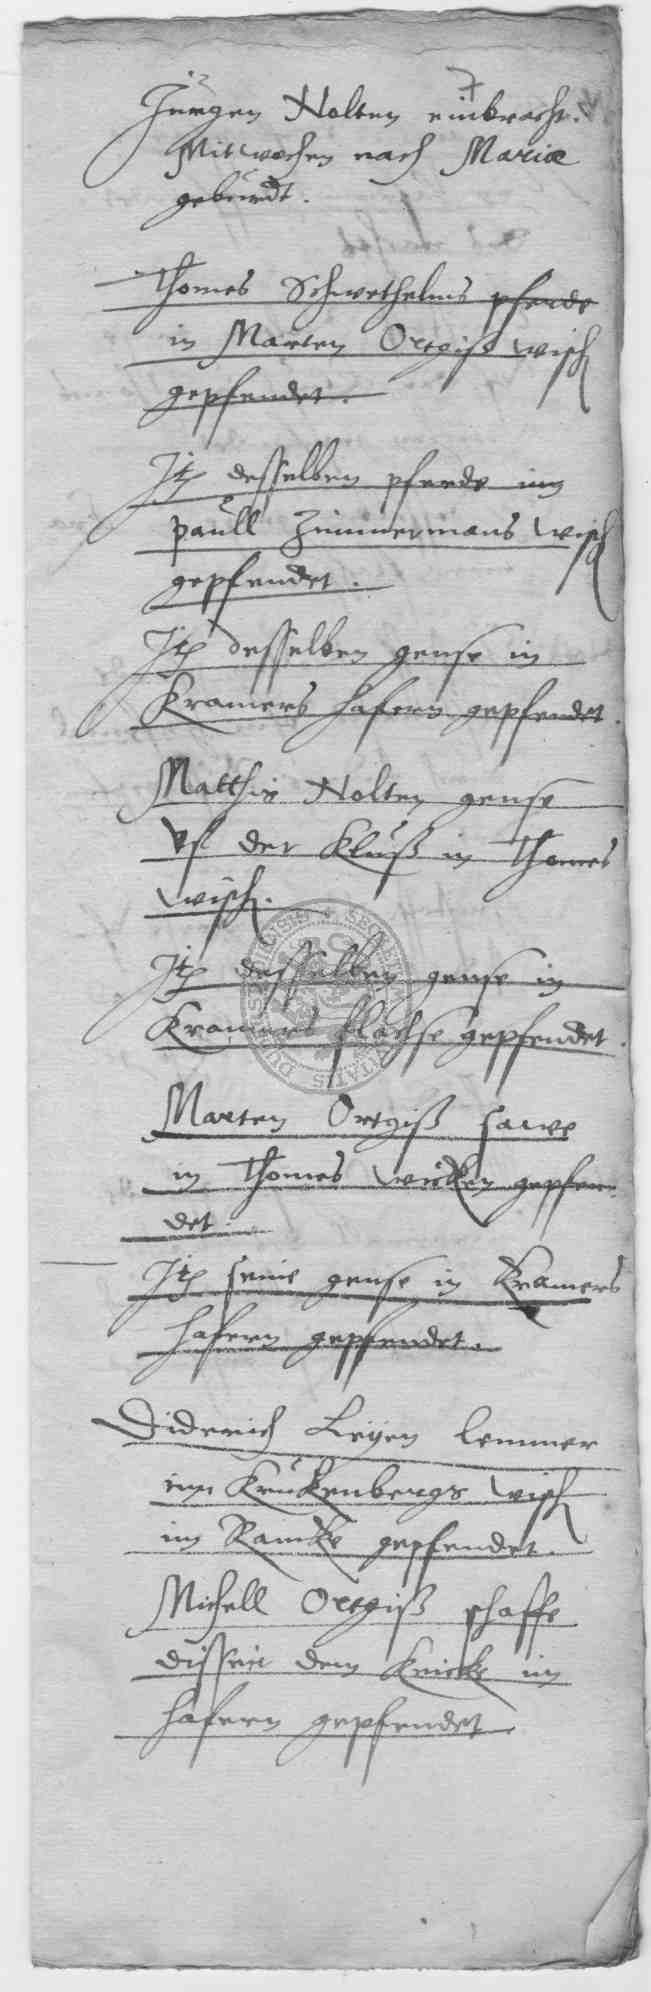 7
Jurgen Nolten einbracht.
Mitwochen nach Mariæ
geburdt.
Thomes Schwethelms pferde
in Marten Ortgiß wisch
gepfendet.
Itē desselben pferde inn
paull Zimmermans wisch
gepfendet.
Itē desselben gense in
Kramers hafern gepfendet.
Matthis Nolten gense
vf der Kluß in Thomes
wisch.
Itē desselben gense in
Kramers flachse gepfendet.
Marten Ortgiß sawe
in Thomes wicken gepfen-
det.
Itē seine gense in Kramers
hafern gepfendet.
Diderich Leyen lemmer
inn Kruckenbergs wisch
im gepfendet.
Michell Ortgiß schaffe
disseit dem im
hafern gepfendet